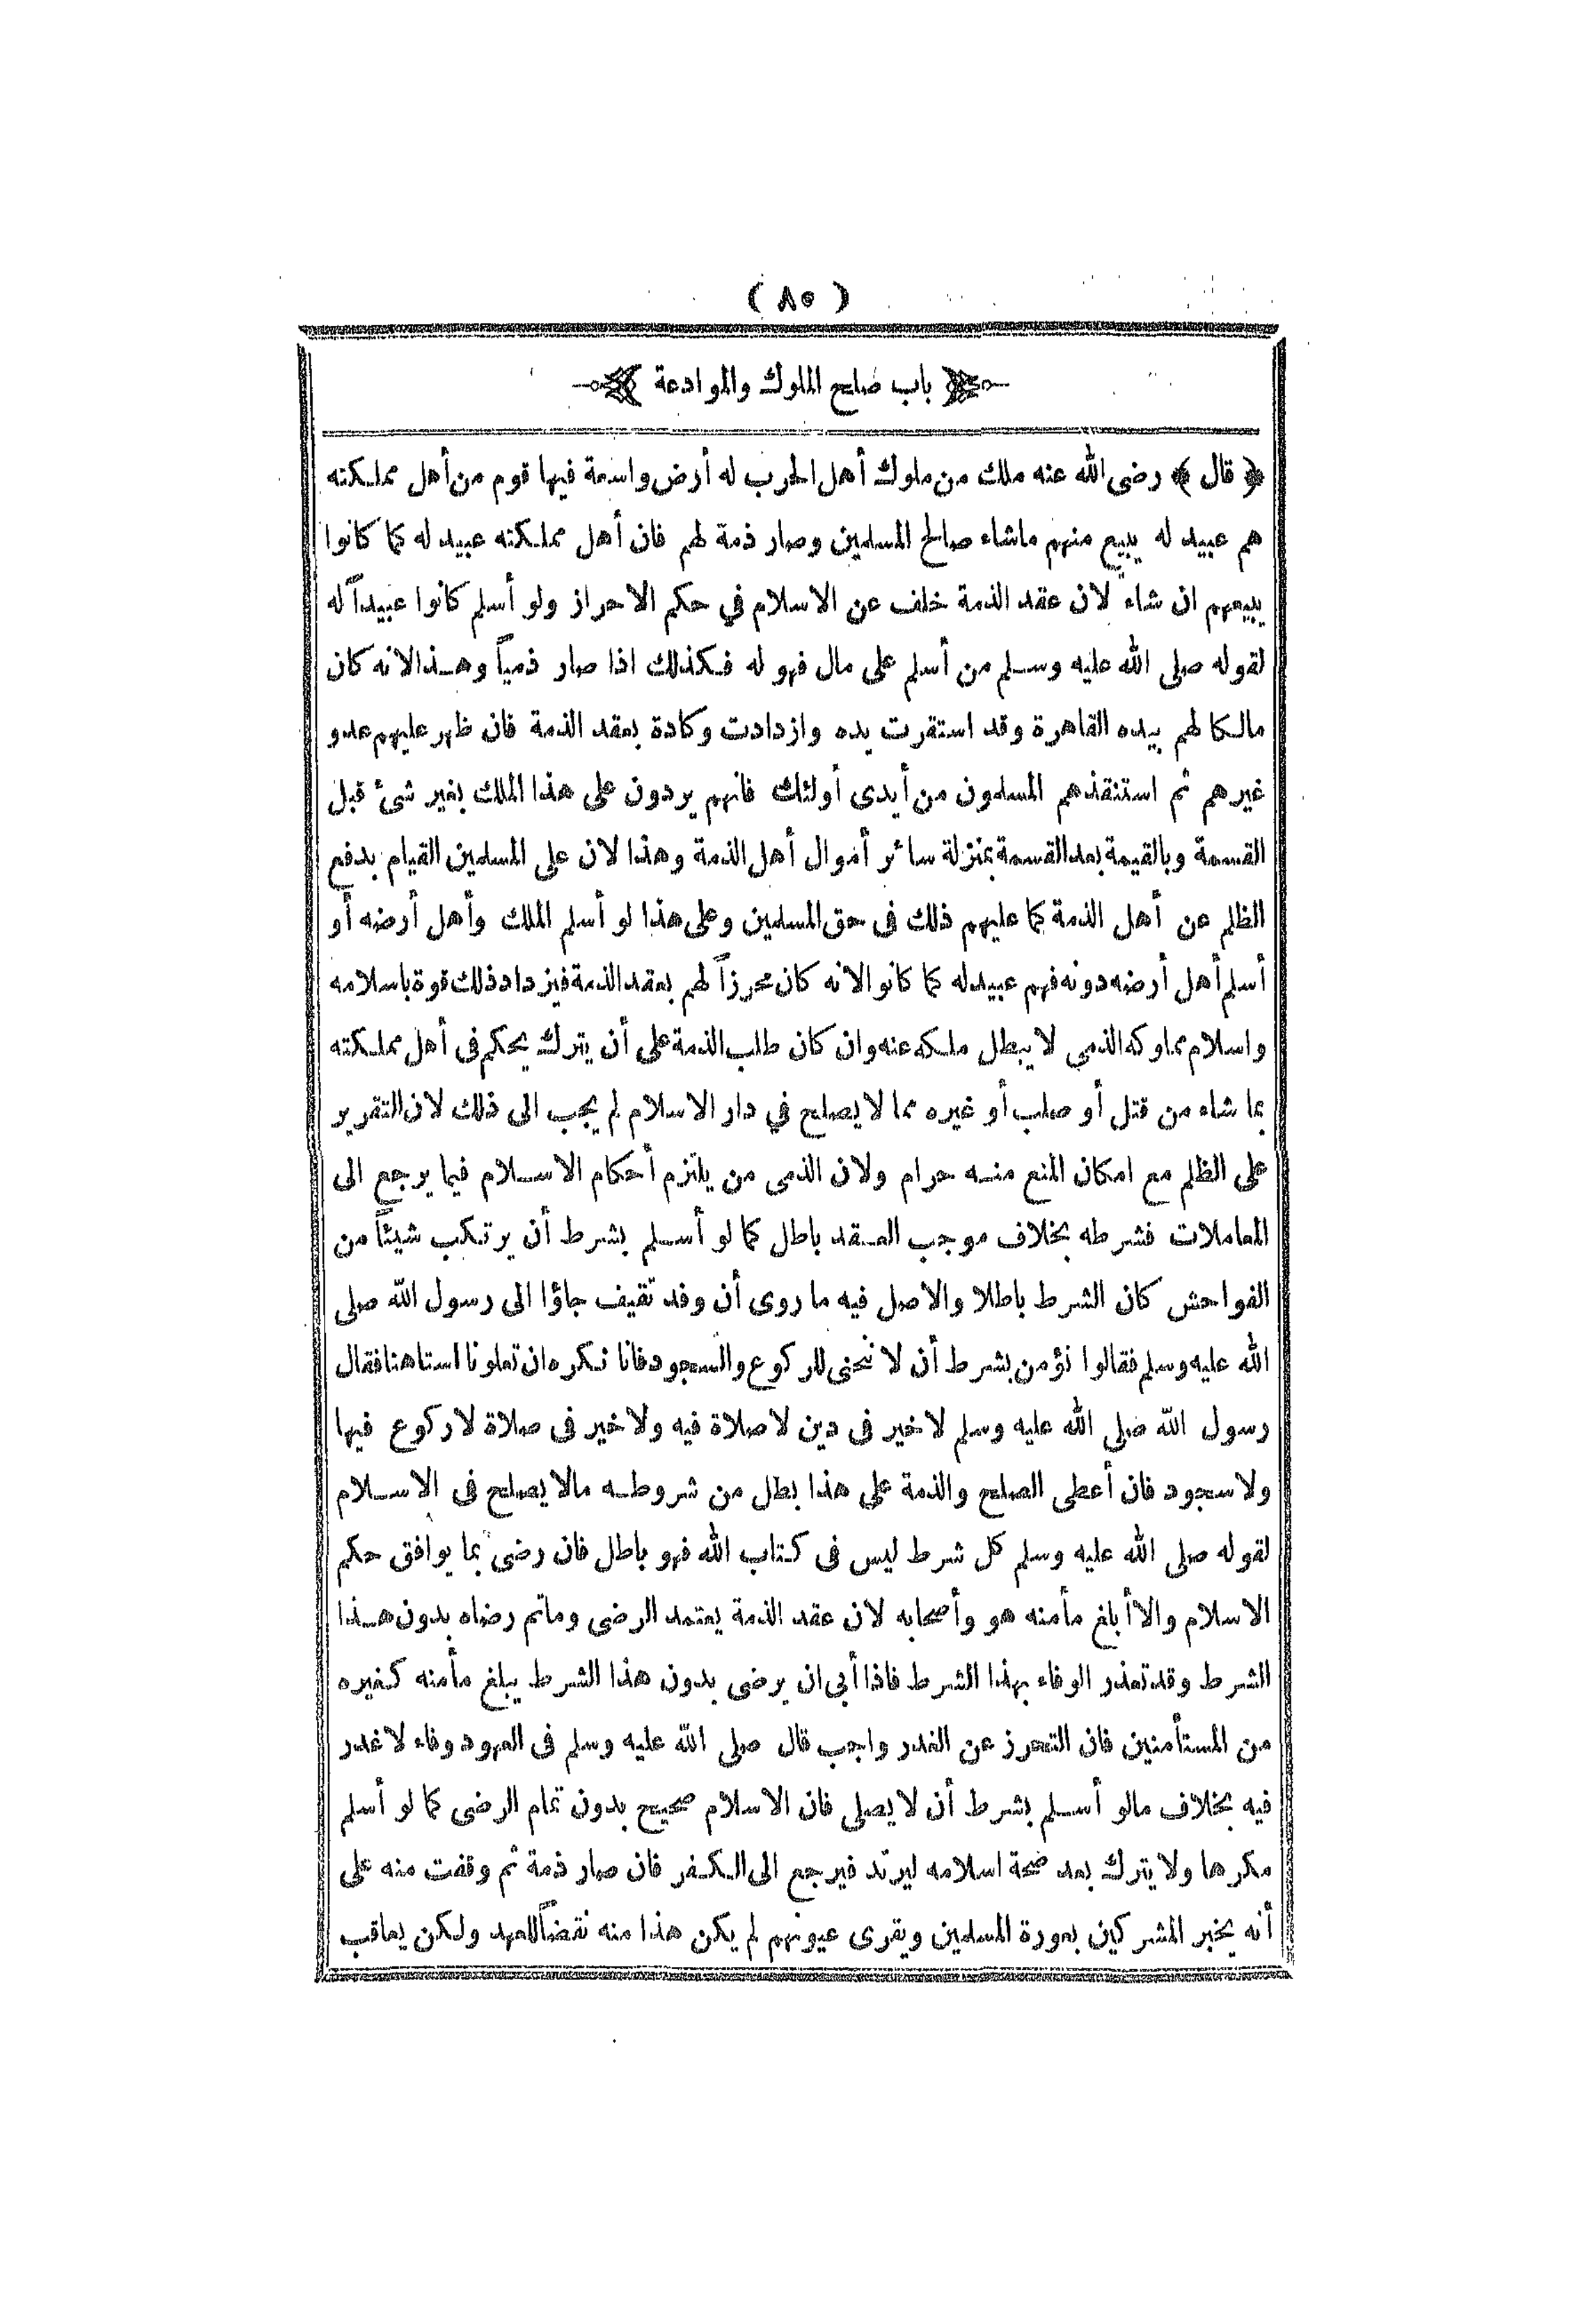 ( ٨٥ )
باب صلح الملوك والموادعة
﴿ قال ﴾ رضى الله عنه ملك من ملوك أهل الحرب له أرض واسعة فيها قوم من أهل مملكته
هم عبيد له يبيع منهم ماشاء صالح المسلمين وصار ذمة لهم فان أهل مملكته عبيد له كما كانوا
يبيعهم ان شاء لان عقد الذمة خلف عن الاسلام في حكم الاحراز ولو أسلم كانوا عبيداً له
لقوله صلى الله عليه وسلم من أسلم على مال فهو له فكذلك اذا صار ذمياً وهذا لانه كان
مالكا لهم بيده القاهرة وقد استقرت يده وازدادت وكادة بعقد الذمة فان ظهر عليهم عدو
غيرهم ثم استنقذهم المسلمون من أيدى أولئك فانهم يردون على هذا الملك بغير شئ قبل
القسمة وبالقيمة بعد القسمة بمنزلة سائر أموال أهل الذمة وهذا لان على المسلمين القيام بدفع
الظلم عن أهل الذمة كما عليهم ذلك فى حق المسلمين وعلى هذا لو أسلم الملك وأهل أرضه أو
أسلم أهل أرضه دونه فهم عبيد له كما كانوا لانه كان محرزاً لهم بعقد الذمة فيزداد ذلك قوة باسلامه
واسلام مملوكه الذمى لا يبطل ملكه عنه وان كان طلب الذمة على أن يترك يحكم فى أهل مملكته
بما شاء من قتل أو صلب أو غيره مما لا يصلح في دار الاسلام لم يجب الى ذلك لان التقرير
على الظلم مع امكان المنع منه حرام ولان الذمى من يلتزم أحكام الاسلام فيما يرجع الى
المعاملات فشرطه بخلاف موجب العقد باطل كما لو أسلم بشرط أن يرتكب شيئاً من
الفواحش كان الشرط باطلا والاصل فيه ما روى أن وفد ثقيف جاؤا الى رسول الله صلى
الله عليه وسلم فقالوا نؤمن بشرط أن لا ننحنى للركوع والسجود فانا نكره ان تعلونا استاهنا فقال
رسول الله صلى الله عليه وسلم لا خير فى دين لا صلاة فيه ولا خير فى صلاة لا ركوع فيها
ولا سجود فان أعطى الصلح والذمة على هذا بطل من شروطه مالا يصلح فى الاسلام
لقوله صلى الله عليه وسلم كل شرط ليس فى كتاب الله فهو باطل فان رضى بما يوافق حكم
الاسلام والا أبلغ مأمنه هو وأصحابه لان عقد الذمة يعتمد الرضى وماتم رضاه بدون هذا
الشرط وقد تعذر الوفاء بهذا الشرط فاذا أبى ان يرضى بدون هذا الشرط يبلغ مأمنه كغيره
من المستأمنين فان التحرز عن الغدر واجب قال صلى الله عليه وسلم فى العهود وفاء لا غدر
فيه بخلاف مالو أسلم بشرط أن لا يصلى فان الاسلام صحيح بدون تمام الرضى كما لو أسلم
مكرها ولا يترك بعد صحة اسلامه ليرتد فيرجع الى الكفر فان صار ذمة ثم وقفت منه على
أنه يخبر المشركين بعورة المسلمين ويقرى عيونهم لم يكن هذا منه نقضاً للعهد ولكن يعاقب